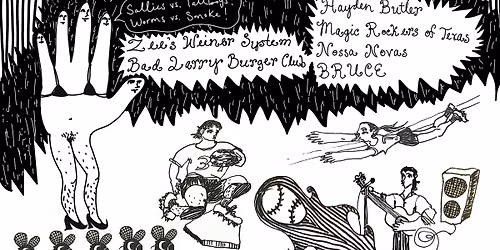 Sallius vs. Tallboys
Worms vs. Smoke
Zee's Weiner System
Bad Larry Burger Club
Hayden Butler
Magic Rockers of Texas
Nossa Novas
BRUCE